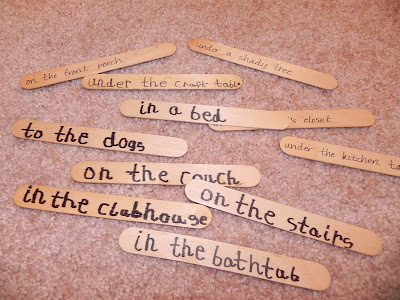 under a shady tree
on the front porch
under the craft table
in a bed
's closet
to the dogs
under the kitchen ta
on the couch
in the clubhouse
on the stairs
in the bathtab